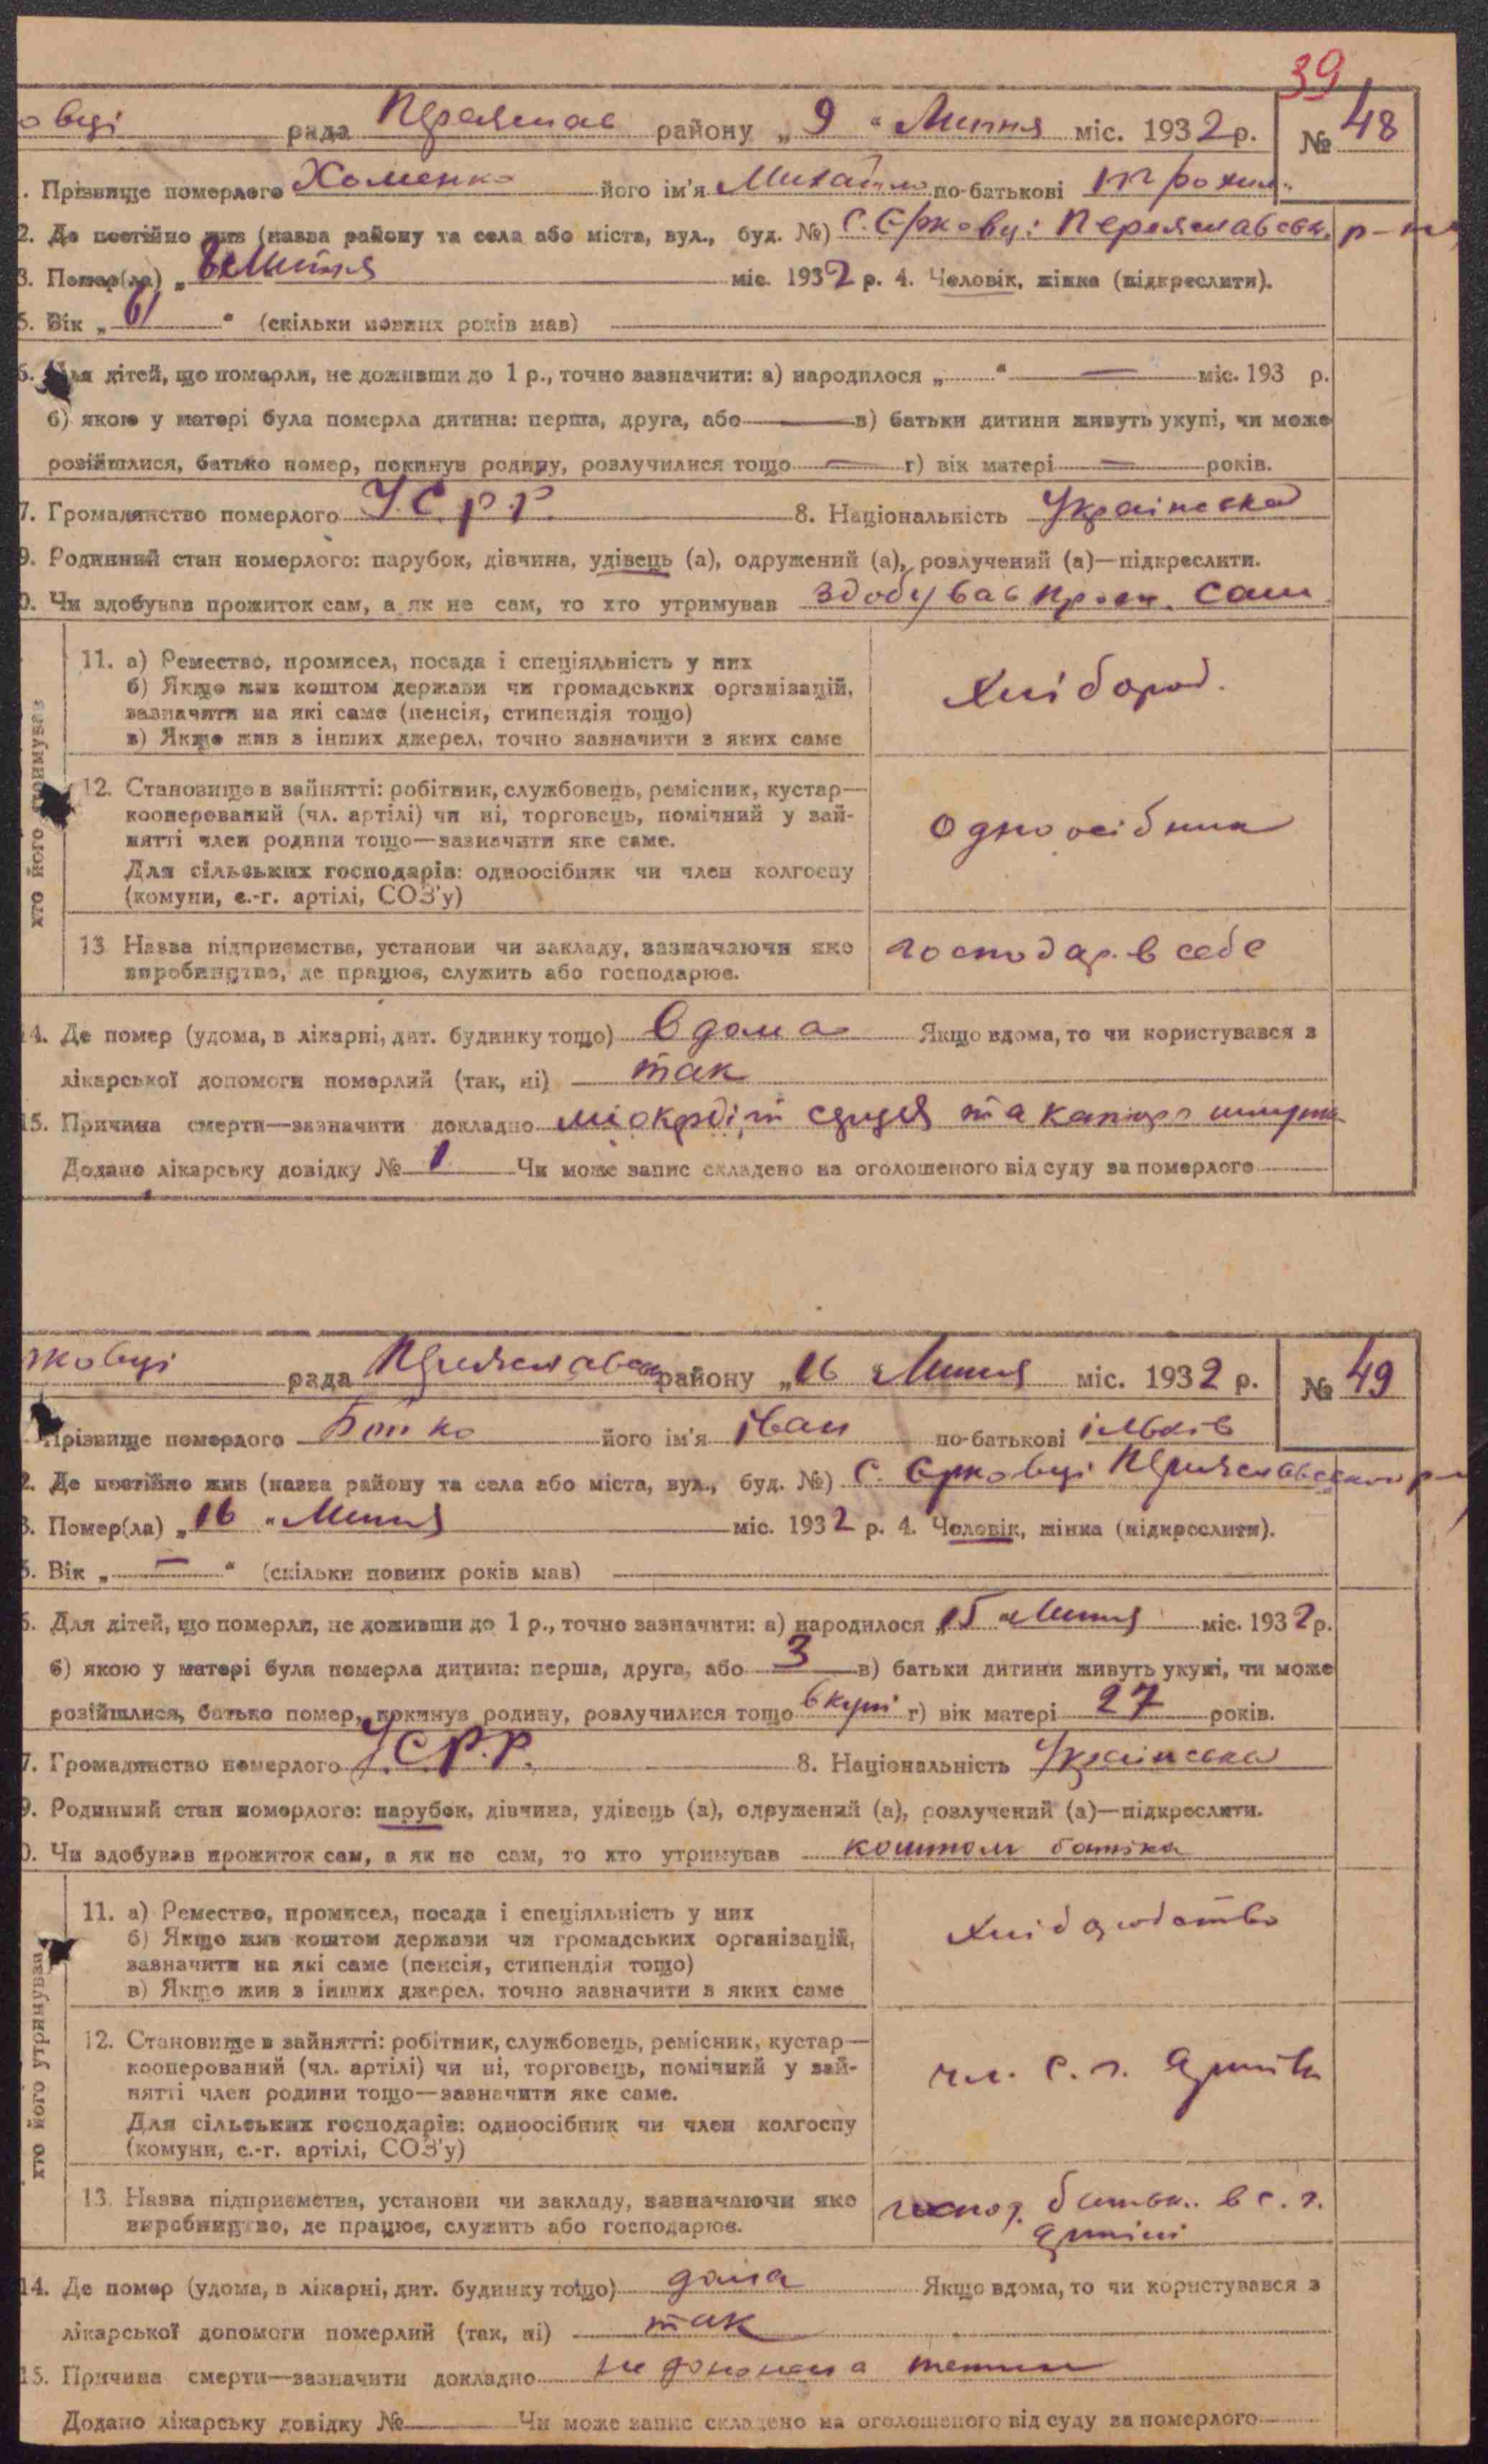 39
овці рада Переяслав району „9“ Липня міс. 1932 р. № 48
. Прізвище померлого Хоменко його ім'я Михайло по-батькові
2. Де постійно жив (назва району та села або міста, вул., буд. №) с. Єрковці Переяславськ. р-ну
3. Помер(ла) „8 Липня міс. 1932 р. 4. Человік, жінка (підкреслити).
5. Вік „61“ (скільки повних років мав)
6. Для дітей, що померли, не доживши до 1 р., точно зазначити: а) народилося „ “ — міс. 193 р.
б) якою у матері була померла дитина: перша, друга, або — в) батьки дитини живуть укупі, чи може
розійшлися, батько помер, покинув родину, розлучилися тощо — г) вік матері — років.
7. Громадянство померлого У.С.Р.Р. 8. Національність Українська
9. Родинний стан померлого: парубок, дівчина, удівець (а), одружений (а), розлучений (а)—підкреслити.
0. Чи здобував прожиток сам, а як не сам, то хто утримував здобував прож. сам
11. а) Ремество, промисел, посада і спеціяльність у них
б) Якщо жив коштом держави чи громадських організацій,
зазначити на які саме (пенсія, стипендія тощо)
в) Якщо жив з інших джерел, точно зазначити з яких саме
Хлібороб.
хто його утримував
12. Становище в зайнятті: робітник, службовець, ремісник, кустар—
кооперований (чл. артілі) чи ні, торговець, помічний у зай-
нятті член родини тощо—зазначити яке саме.
Для сільських господарів: одноосібник чи член колгоспу
(комуни, с.-г. артілі, СОЗ'у)
одноосібник
13 Назва підприємства, установи чи закладу, зазначаючи яке
виробництво, де працює, служить або господарює.
господар. в себе
14. Де помер (удома, в лікарні, дит. будинку тощо) вдома Якщо вдома, то чи користувався з
лікарської допомоги померлий (так, ні) так
15. Причина смерти—зазначити докладно міокрдіт серця та катар шлунка
Додано лікарську довідку № 1 Чи може запис складено на оголошеного від суду за померлого
рковці рада Переяславськ району „16“ Липня міс. 1932 р. № 49
Прізвище померлого Бойко його ім'я Іван по-батькові Ільків
2. Де постійно жив (назва району та села або міста, вул., буд. №) с. Єрковці Переяславського р-ну
3. Помер(ла) „16“ Липня міс. 1932 р. 4. Человік, жінка (підкреслити).
5. Вік „—“ (скільки повних років мав)
6. Для дітей, що померли, не доживши до 1 р., точно зазначити: а) народилося „15“ Липня міс. 1932 р.
б) якою у матері була померла дитина: перша, друга, або 3 в) батьки дитини живуть укупі, чи може
розійшлися, батько помер, покинув родину, розлучилися тощо вкупі г) вік матері 27 років.
7. Громадянство померлого У.С.Р.Р. 8. Національність Українська
9. Родинний стан померлого: парубок, дівчина, удівець (а), одружений (а), розлучений (а)—підкреслити.
0. Чи здобував прожиток сам, а як не сам, то хто утримував коштом батька
11. а) Ремество, промисел, посада і спеціяльність у них
б) Якщо жив коштом держави чи громадських організацій,
зазначити на які саме (пенсія, стипендія тощо)
в) Якщо жив з інших джерел, точно зазначити з яких саме
Хліборобство
хто його утримував
12. Становище в зайнятті: робітник, службовець, ремісник, кустар—
кооперований (чл. артілі) чи ні, торговець, помічний у зай-
нятті член родини тощо—зазначити яке саме.
Для сільських господарів: одноосібник чи член колгоспу
(комуни, с.-г. артілі, СОЗ'у)
чл. с. г. артілі
13. Назва підприємства, установи чи закладу, зазначаючи яке
виробництво, де працює, служить або господарює.
госпо. батьк. в с. г.
артілі
14. Де помер (удома, в лікарні, дит. будинку тощо) дома Якщо вдома, то чи користувався з
лікарської допомоги померлий (так, ні) так
15. Причина смерти—зазначити докладно
Додано лікарську довідку № Чи може запис складено на оголошеного від суду за померлого